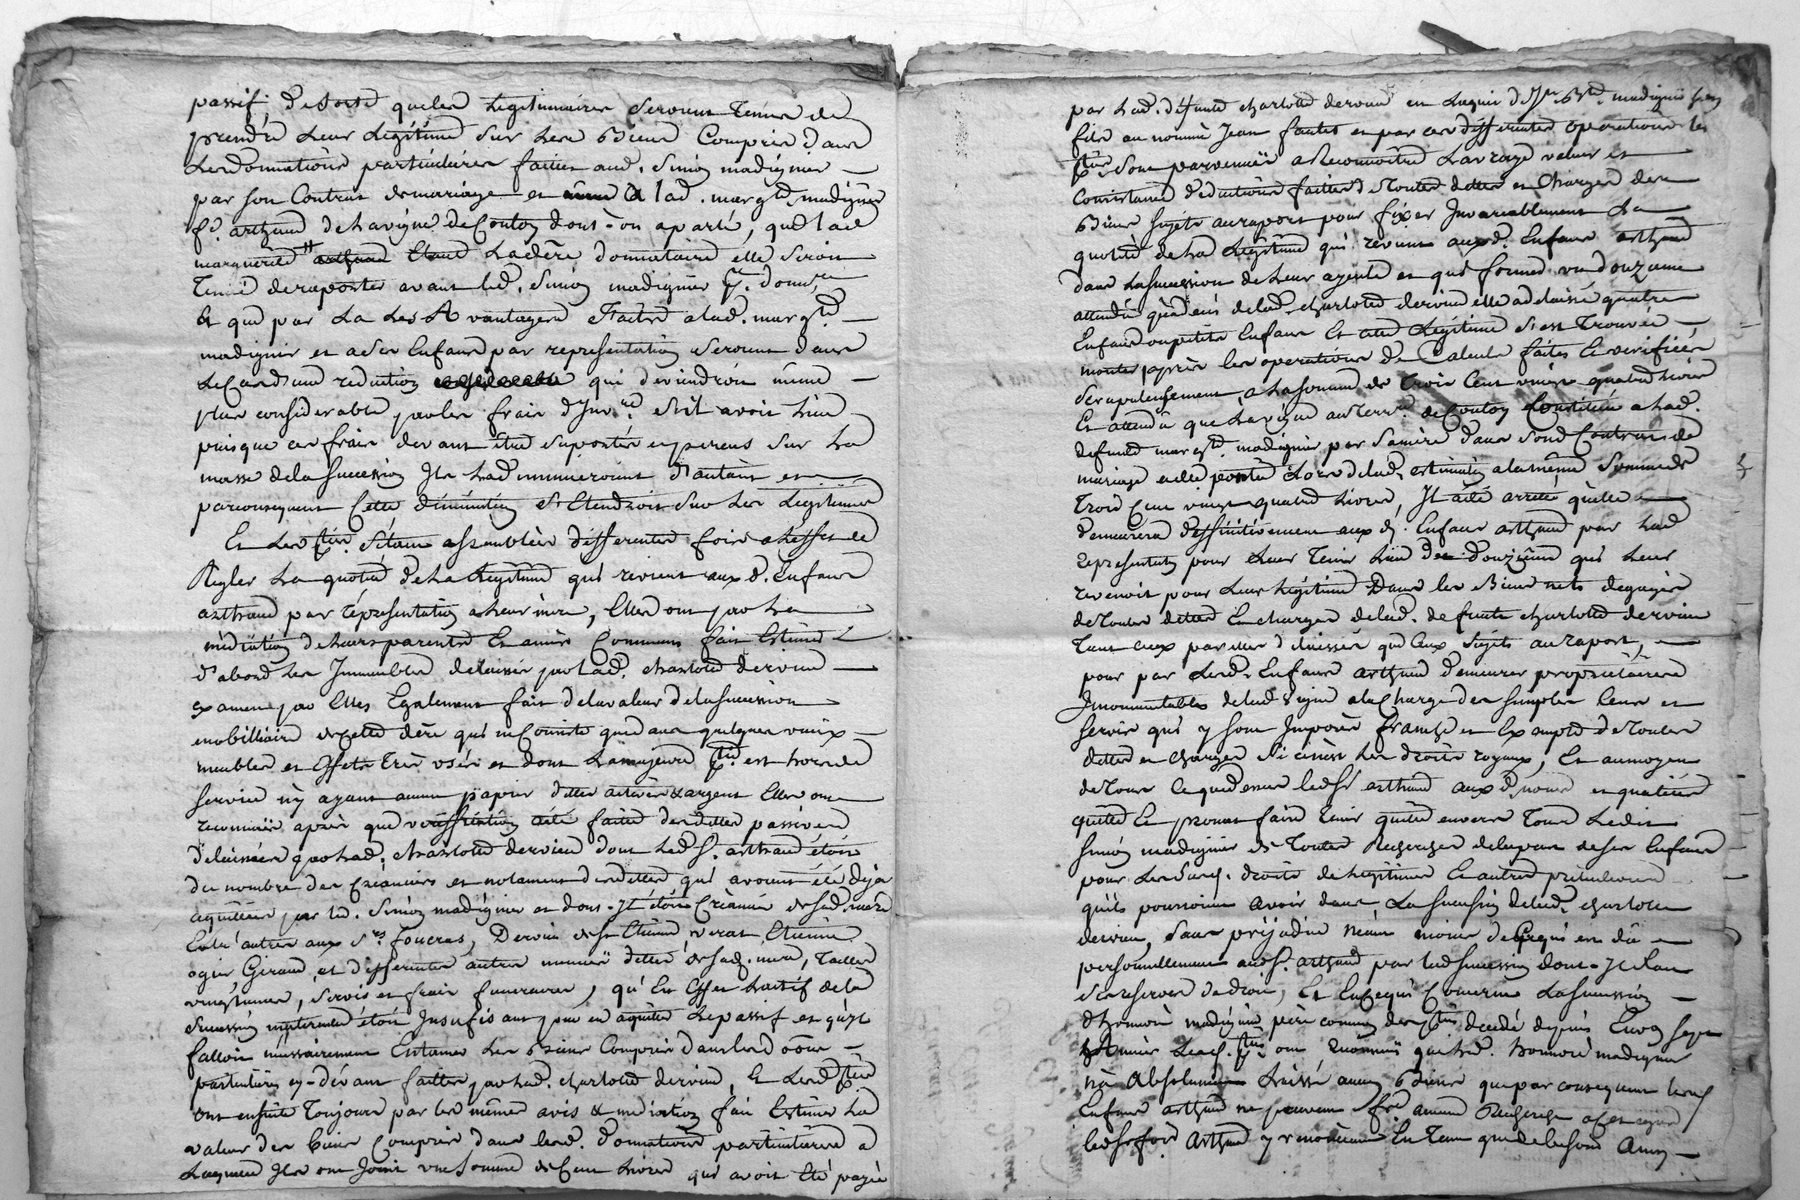 passif. de sorte que les legitimaires seroient tenus de
prendre leur legitime sur les biens compris dans
les donnations particulieres faites aud. Simon madignier
par son Contrat de mariage et a lad. margte. madignier
fe. arthaud de la vigne de Coulon dont on a parlé, que lad
marguerite etant la dere donnataire elle seroit
Tenue de raporter avant led. Simon madignier
et que par la les avantages faits a lad. margte.
madignier et a ses Enfans par representation seroient dans
le cas d'une reduction qui deviendroit même
plus considerable par les frais d'Invre. s'il avoit lieu
puisque ces frais devant être suportés et perçus sur la
masse de la succession Ils la diminueroient d'autant et
par consequent cette diminution s'etendroit sur les legitimes
Et les pties. s'étant assemblées differentes fois a l'effet de
Regler la quotité de la legitime qui revient aux d. Enfans
arthaud par représentation a leur mere, Elles ont par la
médiation de leurs parents et amis communs fait Estimer
d'abord les Immeubles delaissés par lad. charlotte dervieu
examen par Elles Egalement fait de la valeur de la succession
mobilliaire de cette dere qui ne consiste que dans quelques vieux
meubles et effets très usés et dont la majeure ptie est hors de
service n'y ayant aucun papier dettes actives & argent Elles ont
reconnües après que verification a été faite des dettes passives
delaissées par lad. charlotte dervieu dont led. Sr. arthaud étoit
du nombre des créanciers et notament des dettes qui avoient été deja
aquittées par led. Simon madignier et dont il étoit Créancier de sad. mere
Entr'autres aux Srs. , Dervieu Etienne verat, Etienne
ogier Giraud, et differentes autres menües dettes de sad. mere, Tailles
vingtiemes, servis et frais funeraires, qu'En effet l'actif de la
succession étoit Insufisant pour en aquiter le passif et qu'il
falloit nécessairement Entamer les biens compris dans les dons
particuliers cy-devant faittes par lad. charlotte dervieu, Et lesd. pties
ont ensuite Toujours par les mêmes avis & médiation fait Estimer la
valeur des biens compris dans lesd. donnations particulieres a
Laquelle Ils ont Joint une somme de Cent livres qui avoit été payée
par lad. défunte charlotte dervieu en l'aquit dud. Sr. madignier son
fils au nommé Jean et par ces differentes operations les
pties. sont parvenües a Reconnoitre la vraye valeur et
Consistance déductions faites de Toutes dettes et charges des
biens sujets au raport pour fixer Invariablement la
quotité de la Legitime qui revient auxd. Enfans arthaud
dans la succession de leur ayeule et qui forme un douzieme
attendu qu'au deces de lad. charlotte dervieu elle a delaissé quatre
Enfans ou petits Enfans Et cette Legitime s'est Trouvée
monter après les operations de Calculs faites & verifiées
scrupuleusement, a la somme de Trois Cent vingt quatre livres
Et attendu que la vigne au terrre. de Coulon Constituée a lad.
defunte margte. madignier par sa mere dans sond Contrat de
mariage a été portée lors de lad. estimation a la même somme de
Trois Cent vingt quatre livres, Il a été arreté qu'elle
demeurera deffinitivement aux d. Enfans arthaud par lad
representation pour leur Tenir lieu de douzieme qui leur
revenoit pour leur légitime Dans les biens nets degagés
de Toutes dettes Et charges de lad. defunte charlotte dervieu
Tant ceux par elle delaissés que Ceux sujets au raport,
pour par lesd. Enfans arthaud demeurer propriétaires
Incommutables de lad vigne a la Charge des simples Cens et
servis qui y sont Imposés franche et Exempte de Toutes
dettes et charges si ce n'est les droits royaux, Et au moyen
de Tout ce que dessus led Sr arthaud aux d. noms et qualités
quitte Et promet faire Tenir quitte envers Tous ledit
Simon madignier de Toutes Recherches de la part de ses Enfans
pour lesd. droits de legitime Et autres
qu'ils pourroient avoir dans la succession de lad. charlotte
dervieu, sans prejudice néanmoins de Ce qui est dû
personnellement aud Sr. arthaud par lad succession dont Il fait
reserves de droit, Et En ce qui Concerne la succession
d'honnoré madignier père commun des pties décédé depuis Environ sept
années lesd. pties. ont reconnü que led. honnoré madignier
n'a Absolument laissé aucuns biens que par consequent les
Enfans arthaud ne peuvent fre. aucune Recherche a cet egard
led Sr arthaud y renonceant En Tant que de besoin Aussy